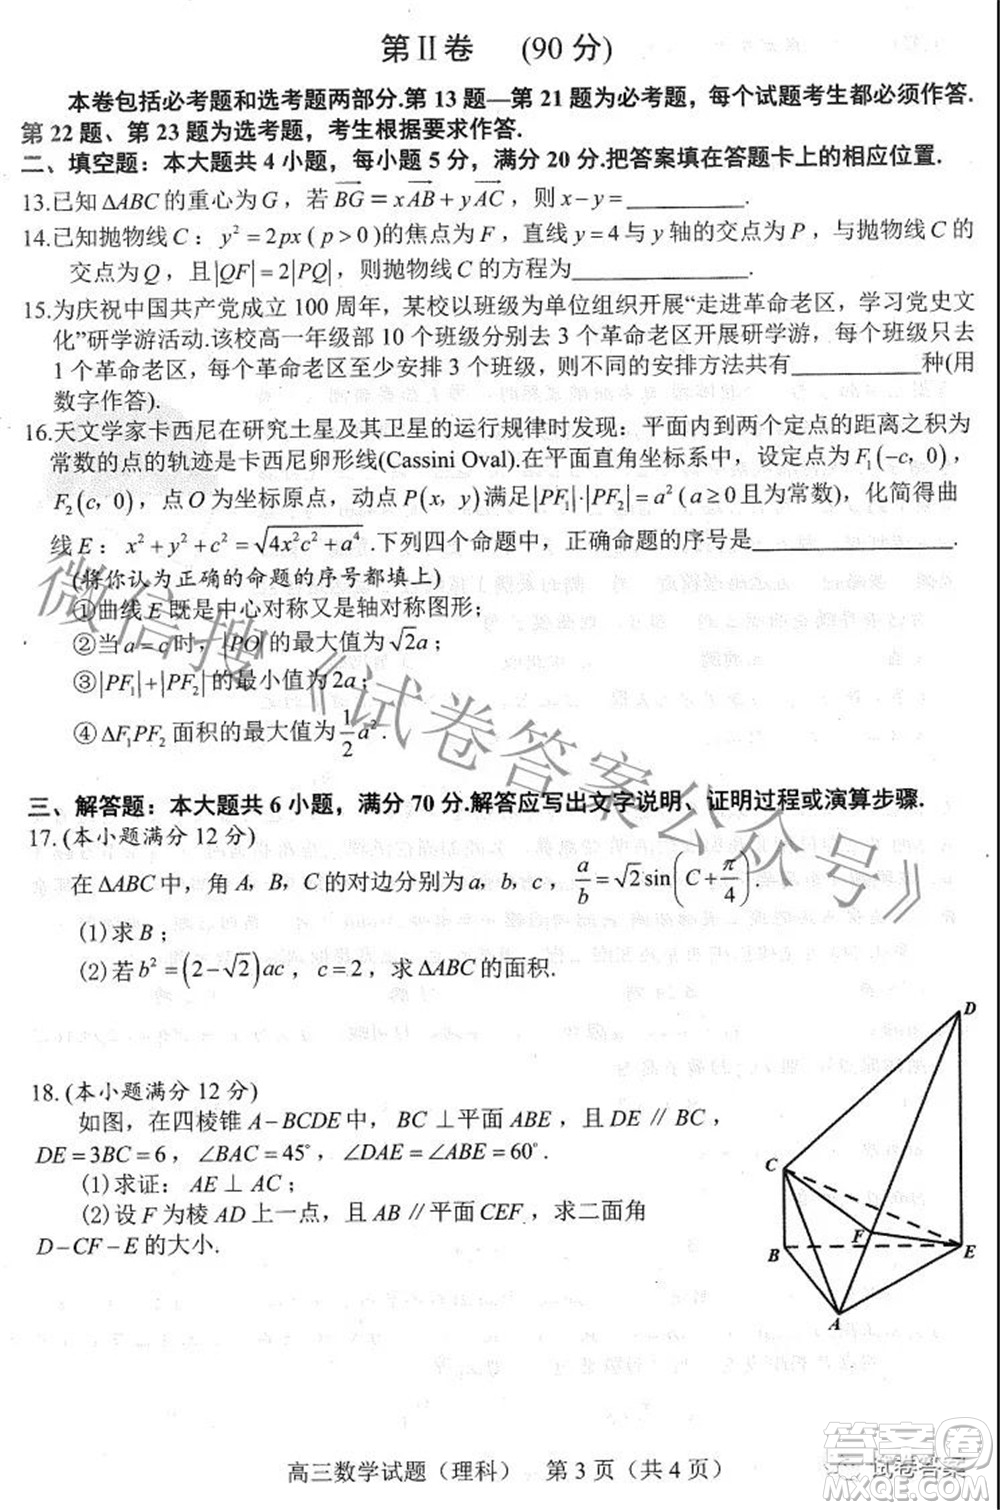 第Ⅱ卷 (90分)
本卷包括必考题和选考题两部分.第13题—第21题为必考题，每个试题考生都必须作答.
第22题、第23题为选考题，考生根据要求作答.
二、填空题：本大题共4小题，每小题5分，满分20分.把答案填在答题卡上的相应位置.
13.已知△ABC的重心为G，若 \overrightarrow{BG}=x\overrightarrow{AB}+y\overrightarrow{AC}，则x-y=________.
14.已知抛物线C：y²=2px(p>0)的焦点为F，直线y=4与y轴的交点为P，与抛物线C的
交点为Q，且|QF|=2|PQ|，则抛物线C的方程为________.
15.为庆祝中国共产党成立100周年，某校以班级为单位组织开展“走进革命老区，学习党史文
化”研学游活动.该校高一年级部10个班级分别去3个革命老区开展研学游，每个班级只去
1个革命老区，每个革命老区至少安排3个班级，则不同的安排方法共有________种(用
数字作答).
16.天文学家卡西尼在研究土星及其卫星的运行规律时发现：平面内到两个定点的距离之积为
常数的点的轨迹是卡西尼卵形线(Cassini Oval).在平面直角坐标系中，设定点为F₁(-c, 0)，
F₂(c, 0)，点O为坐标原点，动点P(x, y)满足|PF₁|·|PF₂|=a²(a≥0且为常数)，化简得曲
线E：x²+y²+c²=√(4x²c²+a⁴).下列四个命题中，正确命题的序号是________
(将你认为正确的命题的序号都填上)
①曲线E既是中心对称又是轴对称图形；
②当a=c时，|PO|的最大值为√2a；
③|PF₁|+|PF₂|的最小值为2a；
④△F₁PF₂面积的最大值为1/2a².
三、解答题：本大题共6小题，满分70分.解答应写出文字说明、证明过程或演算步骤.
17.(本小题满分12分)
在△ABC中，角A，B，C的对边分别为a，b，c，a/b=√2sin(C+π/4).
(1)求B；
(2)若b²=(2-√2)ac，c=2，求△ABC的面积.
18.(本小题满分12分)
如图，在四棱锥A-BCDE中，BC⊥平面ABE，且DE∥BC，
DE=3BC=6，∠BAC=45°，∠DAE=∠ABE=60°.
(1)求证：AE⊥AC；
(2)设F为棱AD上一点，且AB∥平面CEF，求二面角
D-CF-E的大小.
D
C
F
B
E
A
高三数学试题（理科） 第3页（共4页）
微信搜《试卷答案公众号》
答案圈
试卷答案
MXQE.COM